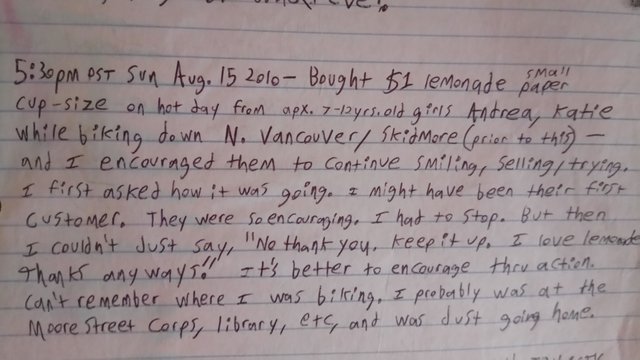 5:30pm PST Sun Aug. 15 2010 - Bought $1 lemonade small paper
cup-size on hot day from apx. 7-12yrs. old girls Andrea, Katie
while biking down N. Vancouver/Skidmore (prior to this) —
and I encouraged them to continue smiling, selling/trying.
I first asked how it was going. I might have been their first
customer. They were so encouraging. I had to stop. But then
I couldn't just say, "No thank you. Keep it up. I love lemonade
Thanks any ways!" It's better to encourage thru action.
Can't remember where I was biking. I probably was at the
Moore Street Corps, library, etc, and was just going home.